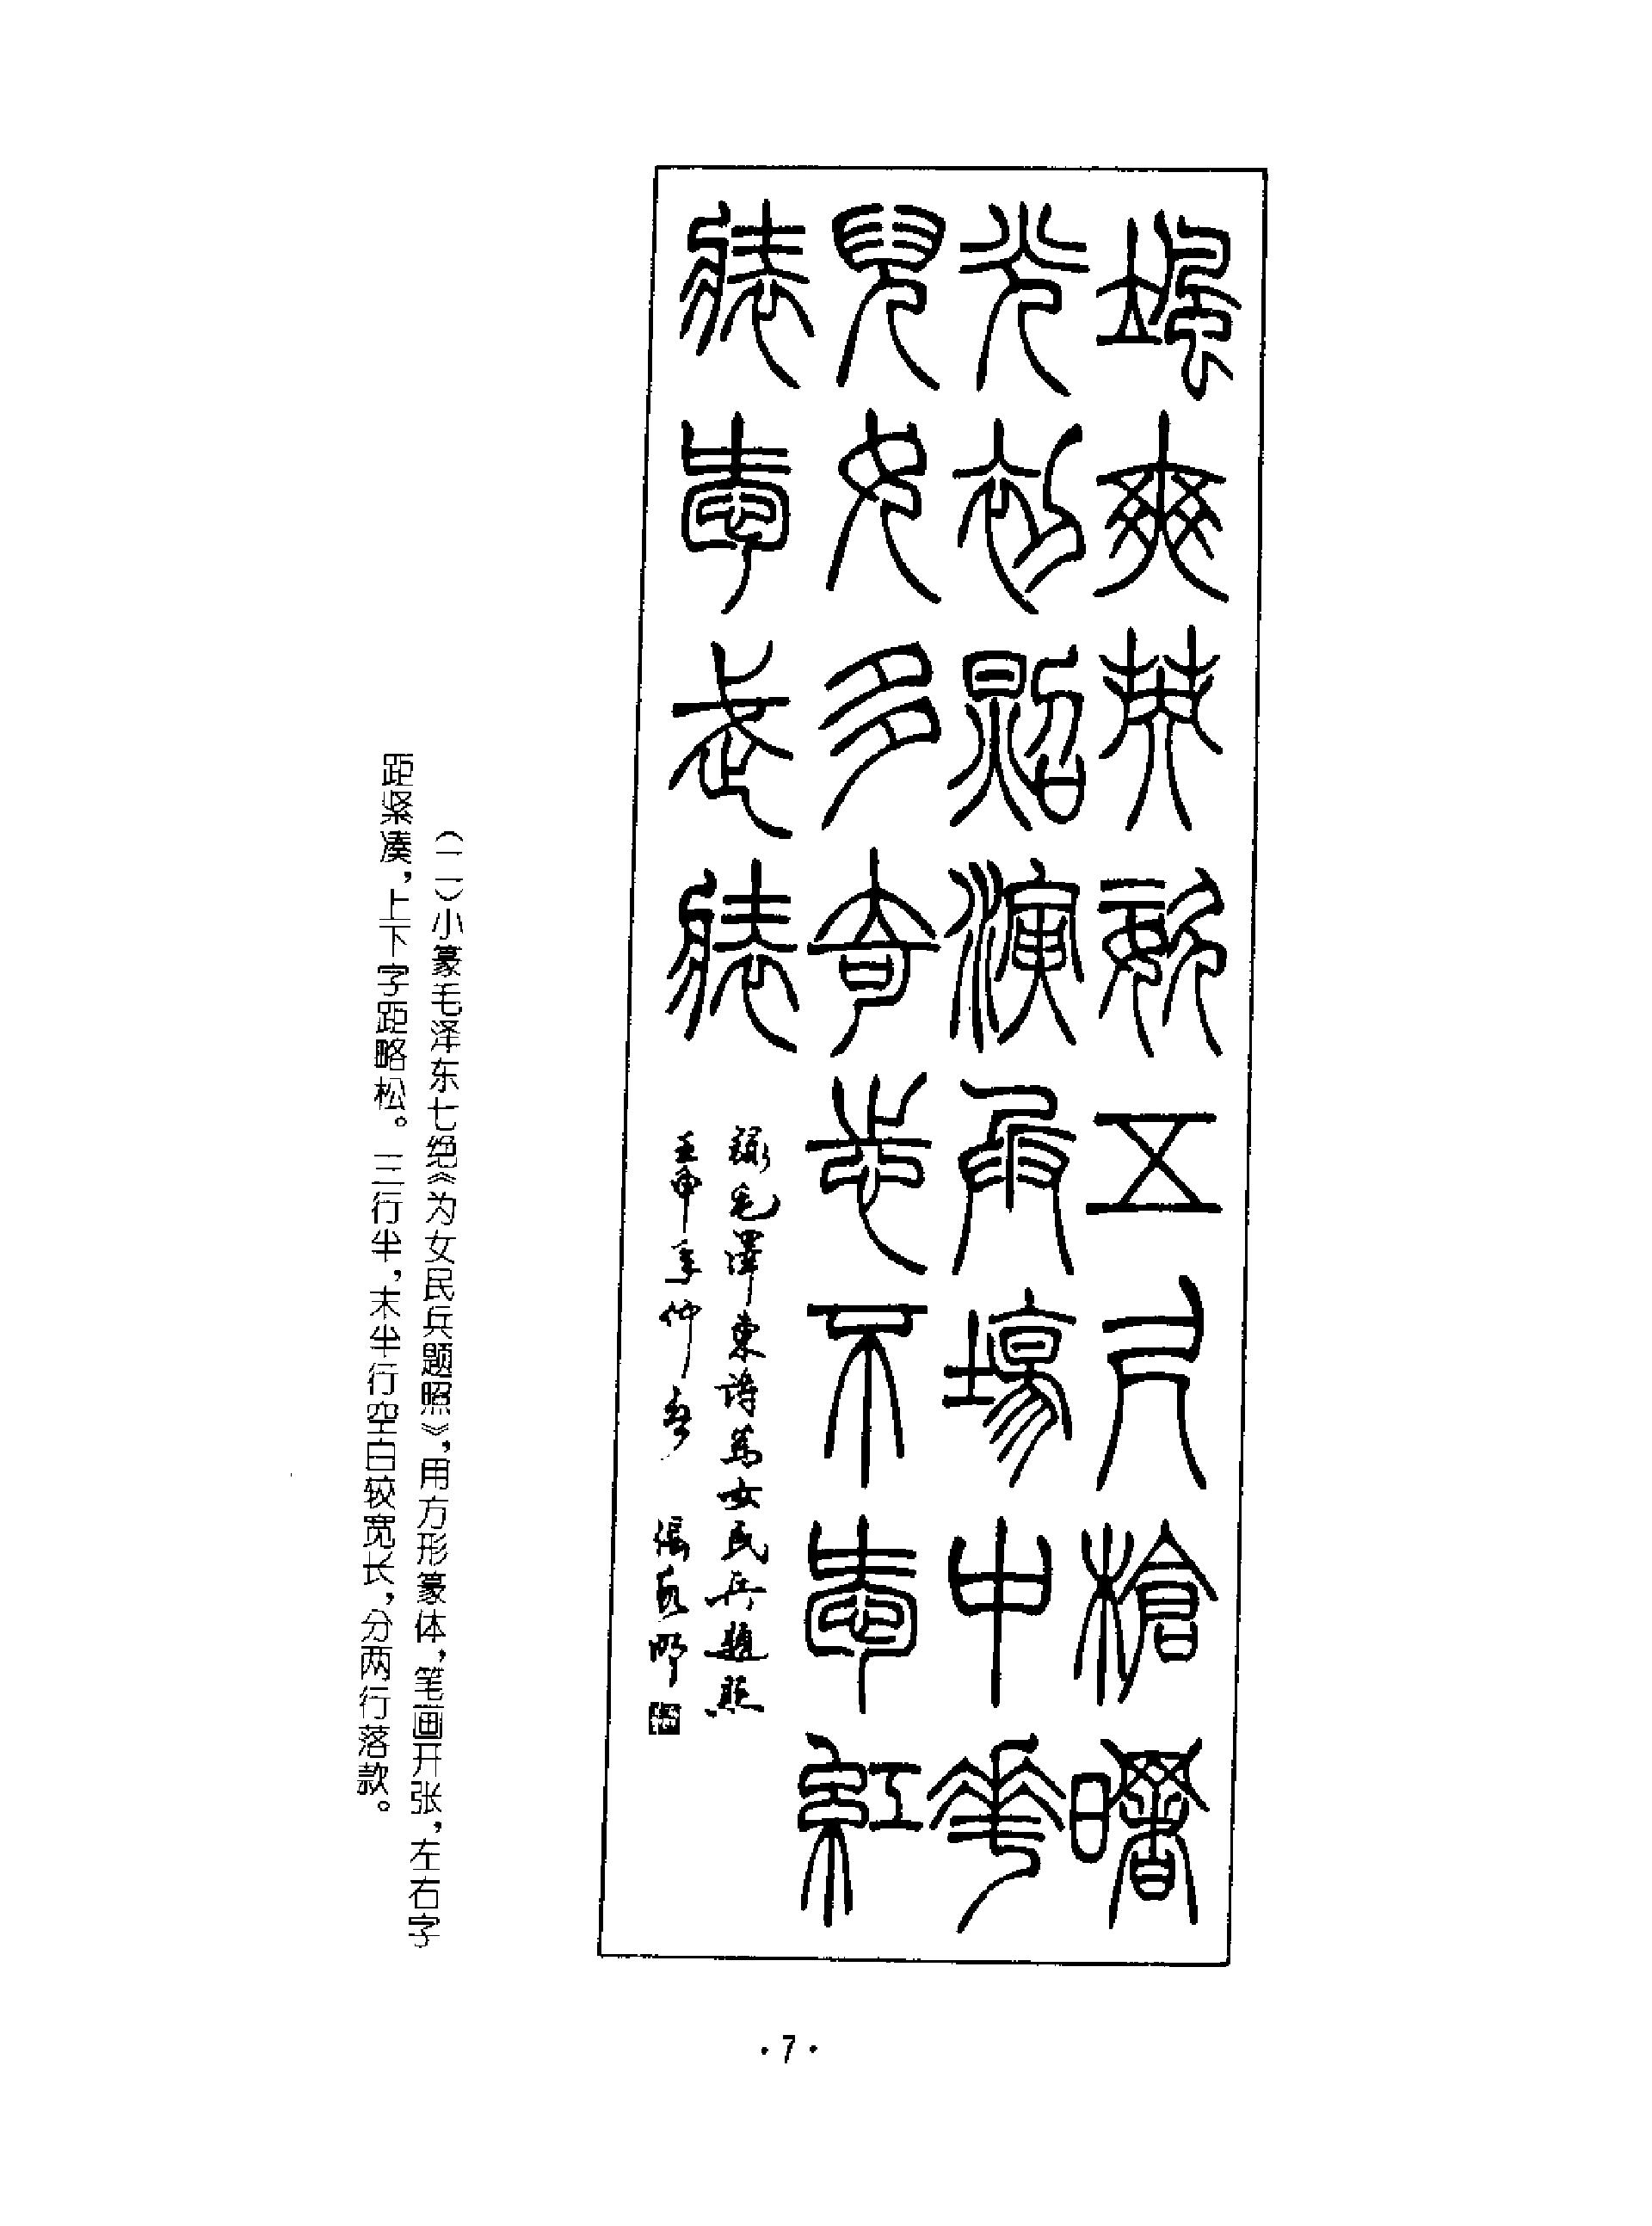 颯爽英姿五尺槍曙
光初照演兵場中華
兒女多奇志不愛紅
裝愛武裝
錄毛澤東詩為女民兵題照
壬申年仲 張 明
(二)小篆毛泽东七绝《为女民兵题照》,用方形篆体,笔画开张,左右字
距紧凑,上下字距略松。三行半,末半行空白较宽长,分两行落款。
·7·